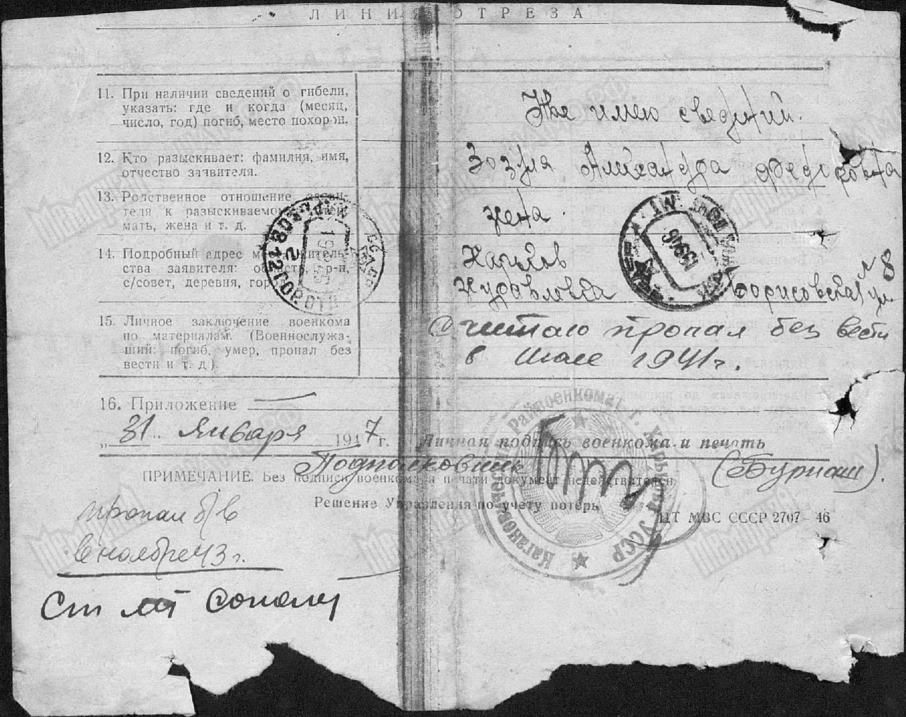 ЛИНИЯ ОТРЕЗА
11. При наличии сведений о гибели,
указать: где и когда (месяц,
число, год) погиб, место похорон.
Не имею сведений.
12. Кто разыскивает: фамилия, имя,
отчество заявителя.
Зозуля Александра Федоровна
13. Родственное отношение заяви-
теля к разыскиваемому
мать, жена и т. д.
жена.
14. Подробный адрес местожитель-
ства заявителя: область, р-н,
с/совет, деревня, гор.
Харьков
Журавлевка Борисовская ул № 8
15. Личное заключение военкома
по материалам. (Военнослужа-
щий: погиб, умер, пропал без
вести и т. д.)
Считаю пропал без вести
в мае 1941 г.
16. Приложение —
„ 31 Января 1947 г. Личная подпись военкома и печать
Подполковник (Бурнаш).
ПРИМЕЧАНИЕ. Без подписи военкома и печати документ недействителен.
Решение Управления по учету потерь
ЦТ МВС СССР 2707—46
пропал б/в
в ноябре 43 г.
Кагановический Райвоенкомат г. Харькова УССР